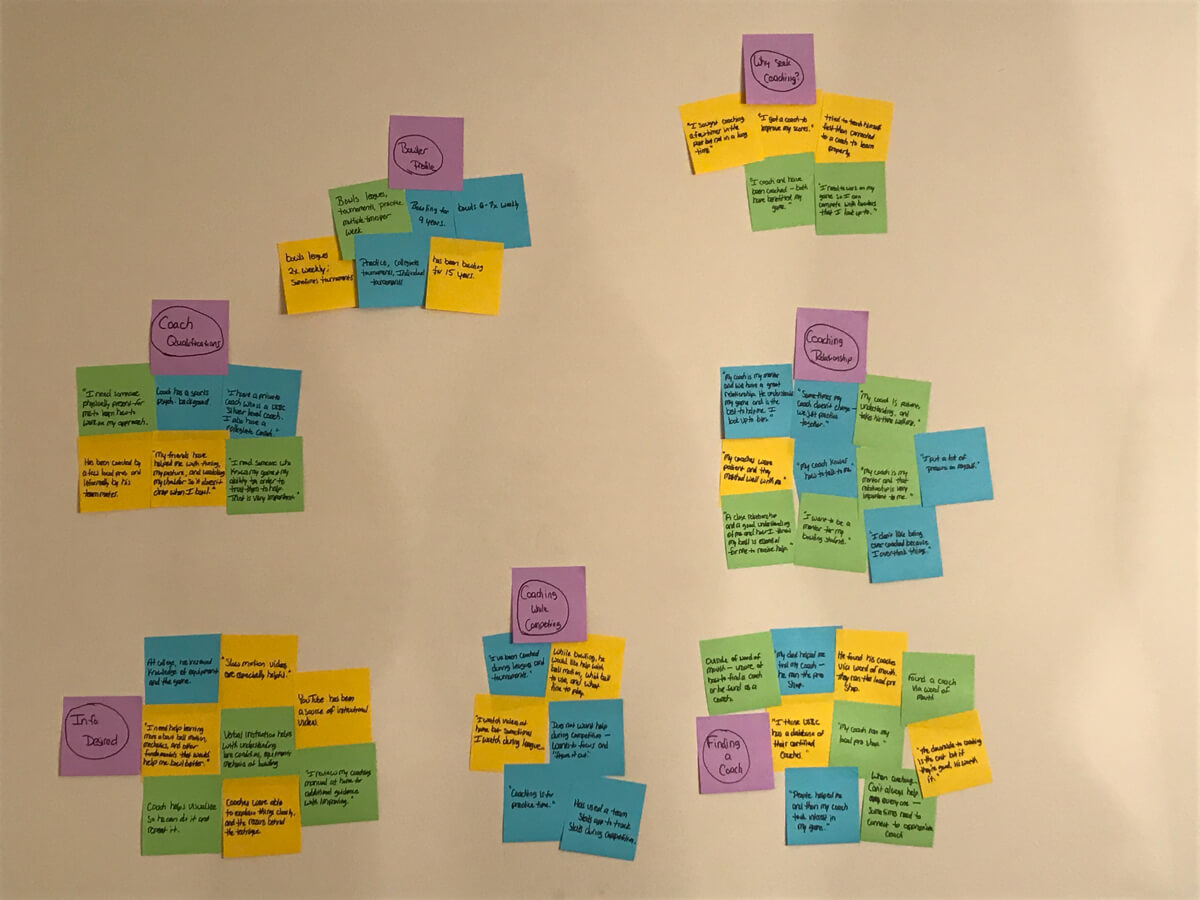 Why Seek
Coaching?
"I sought coaching
a few times in the
past by not in a long
time."
"I got a coach to
improve my scores."
tried to teach himself
first then connected
to a coach to learn
properly.
"I coach and have
been coached - both
have benefitted my
game."
"I need to work on my
game so I can
compete with bowlers
that I look up to."
Bowler
Profile
Bowls leagues,
tournaments, practice
multiple times per
week
Bowling for
9 years.
bowls 6-7x weekly
bowls leagues
2x weekly;
Sometimes tournaments
Practice, collegiate
tournaments, individual
tournaments
has been bowling
for 15 years.
Coach
Qualifications
"I need someone
physically present for
me to learn how to
work on my approach.
Coach has a sports
psych. background
"I have a private
coach who is a USBC
Silver level coach.
I also have a
collegiate coach."
Has been coached by
a few local pros and
informally by his
teammates.
"My friends have
helped me with timing,
my posture, and watching
my shoulder so it doesn't
when I bowl."
"I need someone who
knows my game & my
ability in order to
trust them to help.
Trust is very important."
Coaching
Relationship
"My coach is my mentor
and we have a great
relationship. He understands
my game and is the
best to help me. I
look up to him."
"Sometimes my
coach doesn't charge -
we just practice
together."
"My coach is patient,
understanding, and
takes his time with me."
"My coaches were
patient and they
meshed well with me."
"My coach knows
how to talk to me."
"My coach is my
mentor and that
relationship is very
important to me."
"I put a lot of
pressure on myself."
"A close relationship
and a good understanding
of me and how I throw
my ball is essential
for me to receive help."
"I want to be a
mentor for my
bowling students."
"I don't like being
over coached because
I overthink things."
Info
Desired
At college, has increased
knowledge of equipment
and the game.
"Slow motion videos
are especially helpful."
YouTube has been
a source of instructional
videos.
"I need help learning
more about ball motion,
mechanics, and other
fundamentals that would
help me bowl better."
Verbal instruction helps
with understanding
lane conditions, equipment,
mechanics of bowling
"I review my coaching
manual at home for
additional guidance
with improving."
Coach helps visualize
so he can do it and
repeat it.
Coaches were able
to explain things clearly,
and the reasons behind
the technique.
Coaching
While
Competing
"I've been coached
during leagues and
tournaments."
While bowling, he
would like help with
ball motion, which ball
to use, and what
line to play.
"I watch videos at
home but sometimes
I watch during league."
Does not want help
during competition -
wants to focus and
"figure it out."
"Coaching is for
practice time."
Has used a team
stats app to track
stats during competition.
Finding
a Coach
Outside of word of
mouth - unsure of
how to find a coach
or be found as a
coach.
"My dad helped me
find my coach -
he ran the pro
shop.
He found his coaches
via word of mouth.
they ran the local pro
shop.
Found a coach
via word of
mouth
"I think USBC
has a database of
their certified
coaches."
"My coach ran my
local pro shop."
"The downside to coaching
is the cost but if
they're good, it's worth
it."
"People helped me
and then my coach
took interest in
my game."
When coaching -
Can't always help
everyone -
Sometimes need to
connect to appropriate
coach